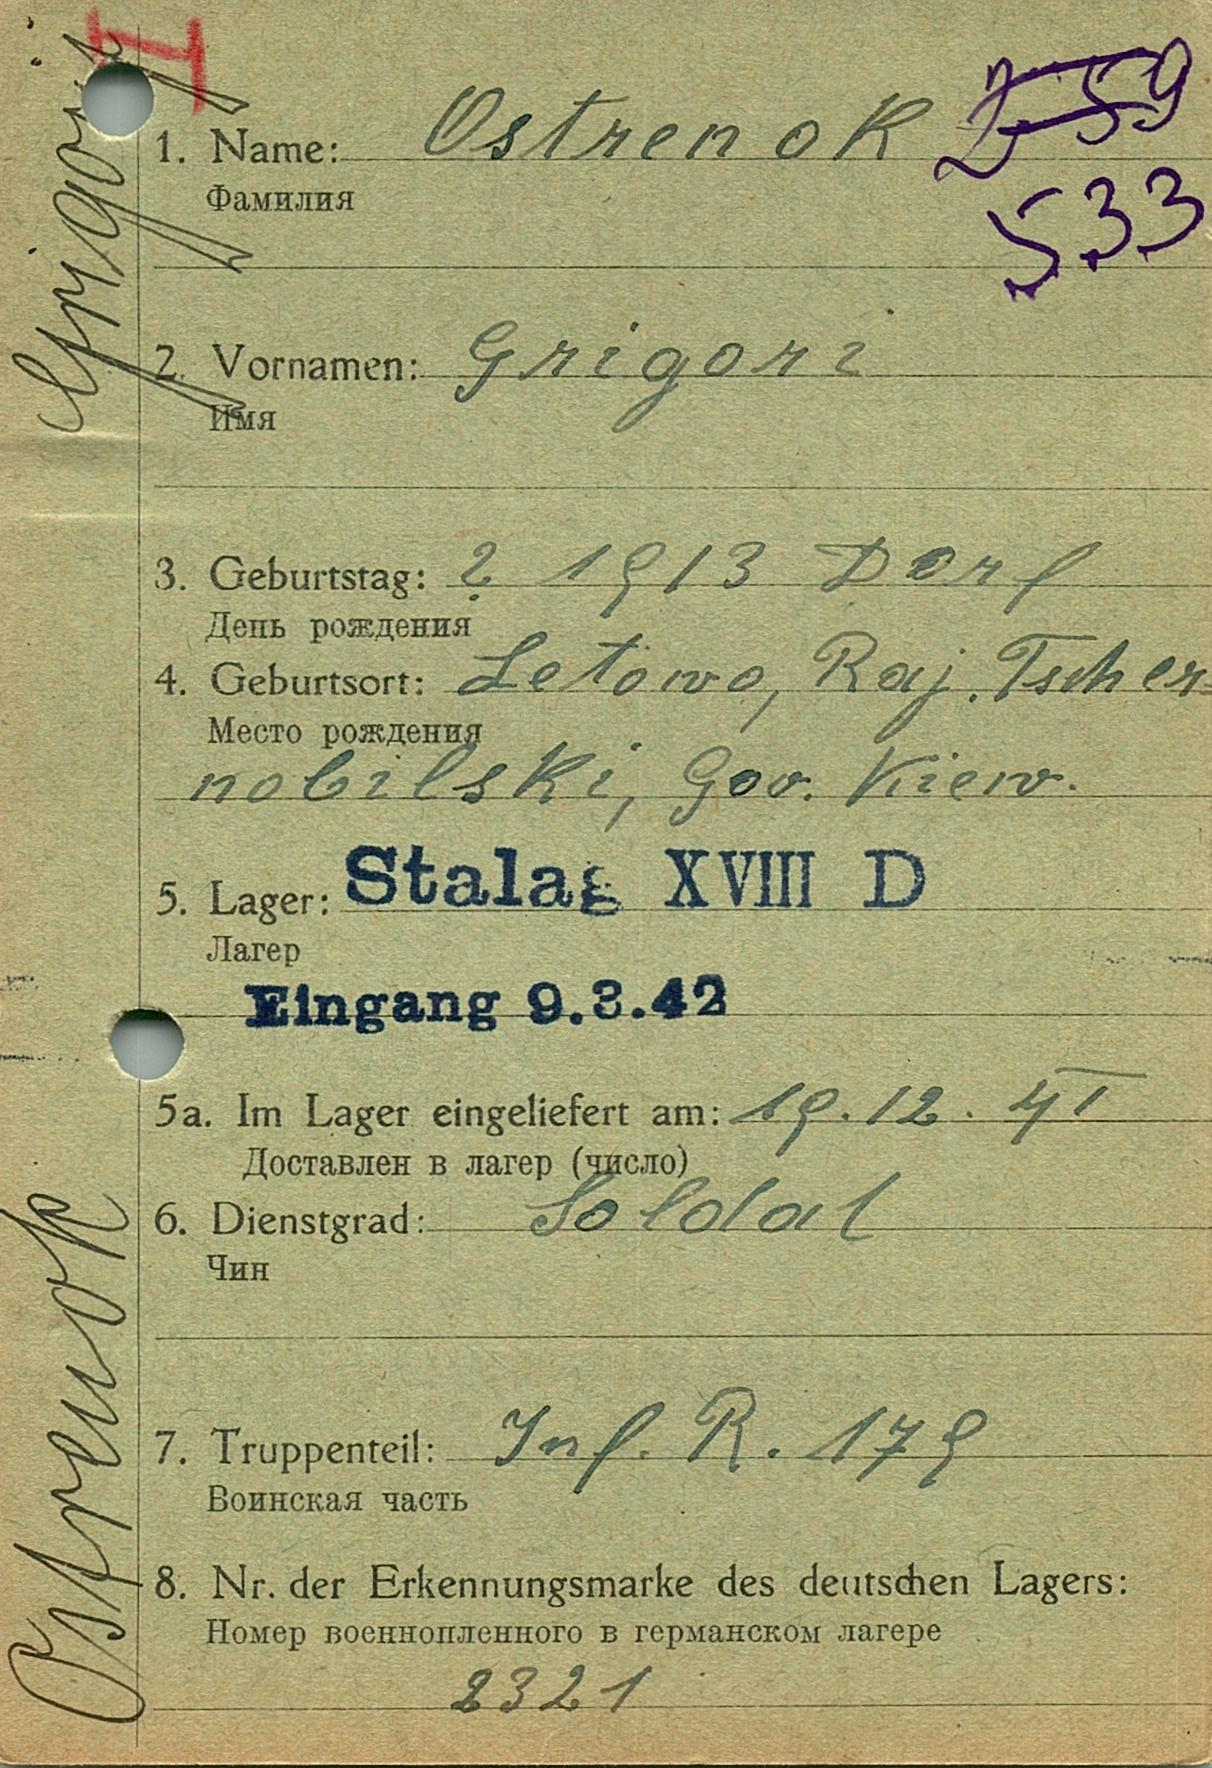 I
2-59
533
1. Name: Ostrenok
Фамилия
2. Vornamen: Grigori
Имя
3. Geburtstag: ? 1913 Dorf
День рождения
4. Geburtsort: Letowo, Raj. Tscher-
Место рождения
nobilski, Gov. Kiew.
5. Lager: Stalag XVIII D
Лагер
Eingang 9.3.42
5a. Im Lager eingeliefert am: 19.12.41
Доставлен в лагер (число)
6. Dienstgrad: Soldat
Чин
7. Truppenteil: Inf. R. 179
Воинская часть
8. Nr. der Erkennungsmarke des deutschen Lagers:
Номер военнопленного в германском лагере
2321
Ostrenok Grigorij